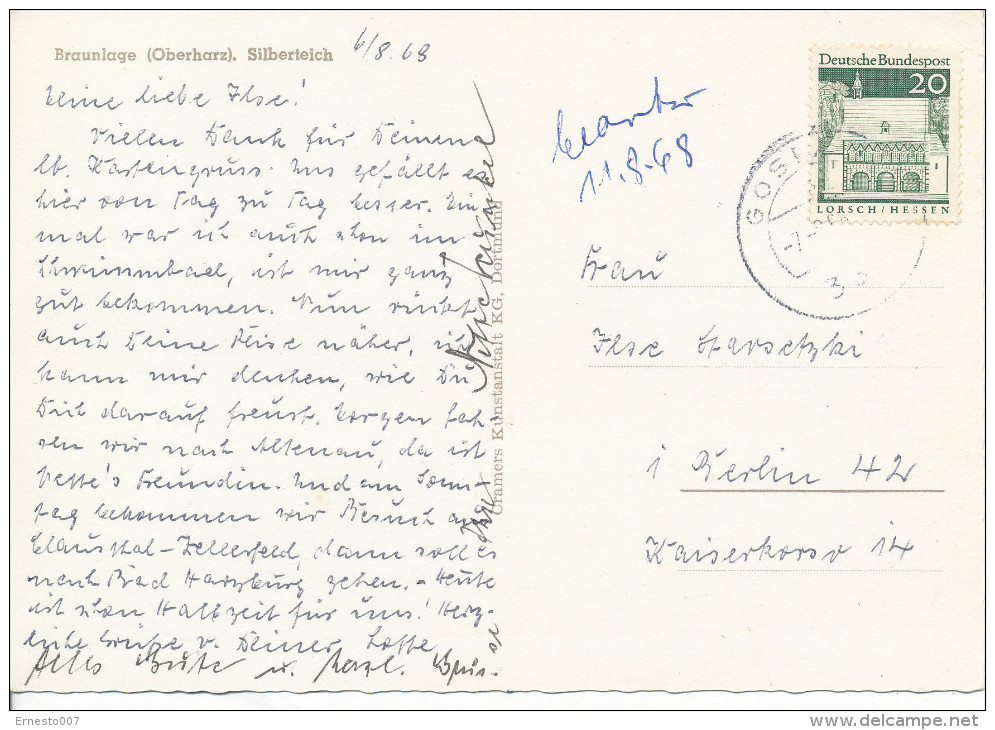 Braunlage (Oberharz). Silberteich
6/8.68
Meine liebe Ilse!
Vielen Dank für Deinen
lb. Kartengruss. Uns gefällt es
hier von Tag zu Tag besser. Ein
mal war ich auch schon im
Schwimmbad, ist mir ganz
gut bekommen. Nun rückt
auch Deine Reise näher, ich
kann mir denken, wie Du
Dich darauf freust. Morgen fah-
ren wir nach Altenau, da ist
Freundin. Und am Sonn-
tag bekommen wir Besuch aus
Clausthal-Zellerfeld, dann soll es
nach Bad Harzburg gehen. - Heute
ist schon Halbzeit für uns! Herz-
liche Grüße v. Deiner Lotte
Alles Gute u. herzl. Grüs-
se
Cramers Kunstanstalt KG, Dortmund
beantw
11.8.68
Deutsche Bundespost
20
LORSCH/HESSEN
GOSL
Frau
Ilse Starsetzki
1 Berlin 42
Kaiserkorso 14
Ernesto007
www.delcampe.net